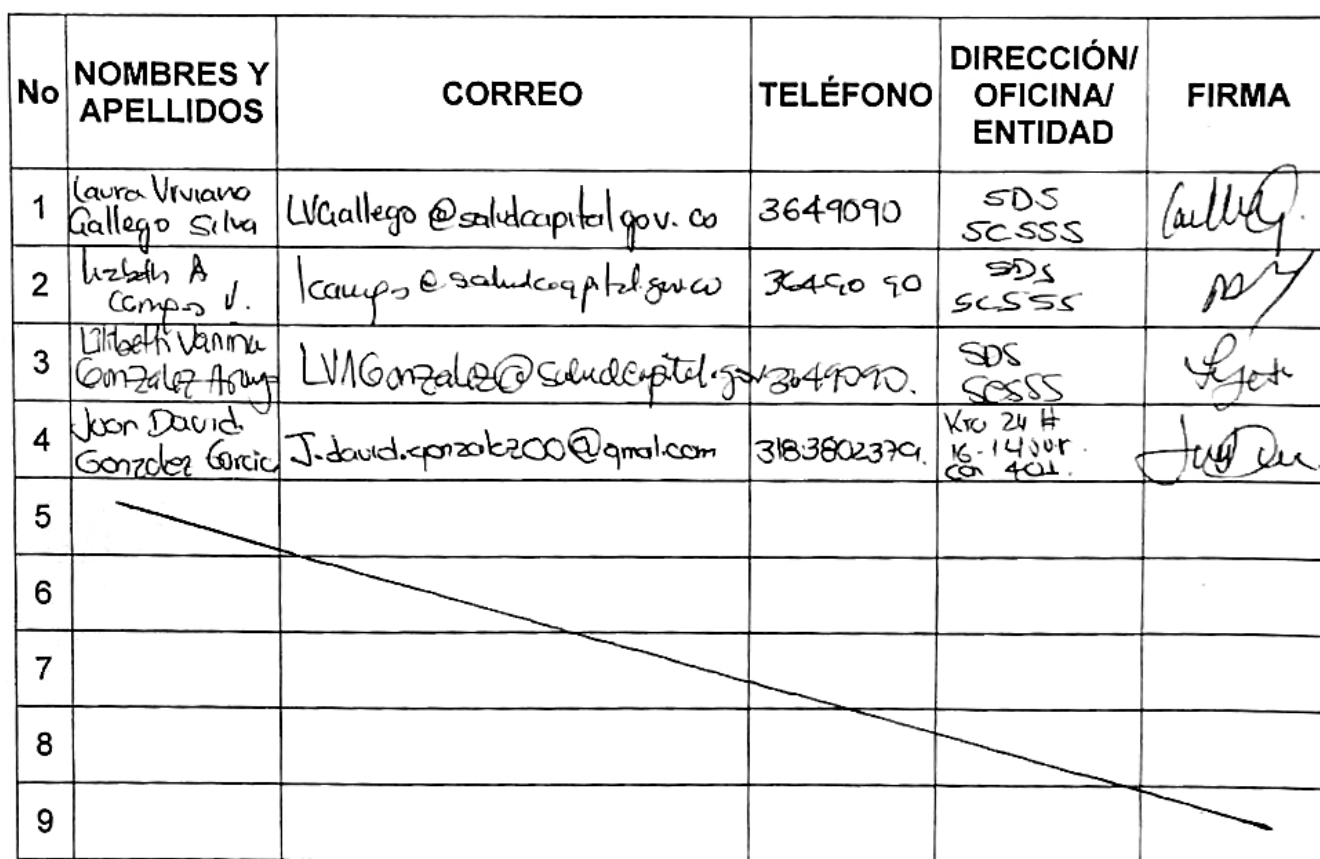 No NOMBRES Y APELLIDOS CORREO TELÉFONO DIRECCIÓN/ OFICINA/ ENTIDAD FIRMA
1 Laura Viviana Gallego Silva LVGallego@saludcapital.gov.co 3649090 SDS SCSSS
2 Lizbeth A Campos V. lcampos@saludcapital.gov.co 36490 90 SDS SCSSS
3 Lilibeth Vanina González LVAGonzalez@saludcapital.gov 3649090. SDS SCSSS
4 Juan David González García J.david.gonzalez00@gmail.com Kra 24 #
5
6
7
8
9